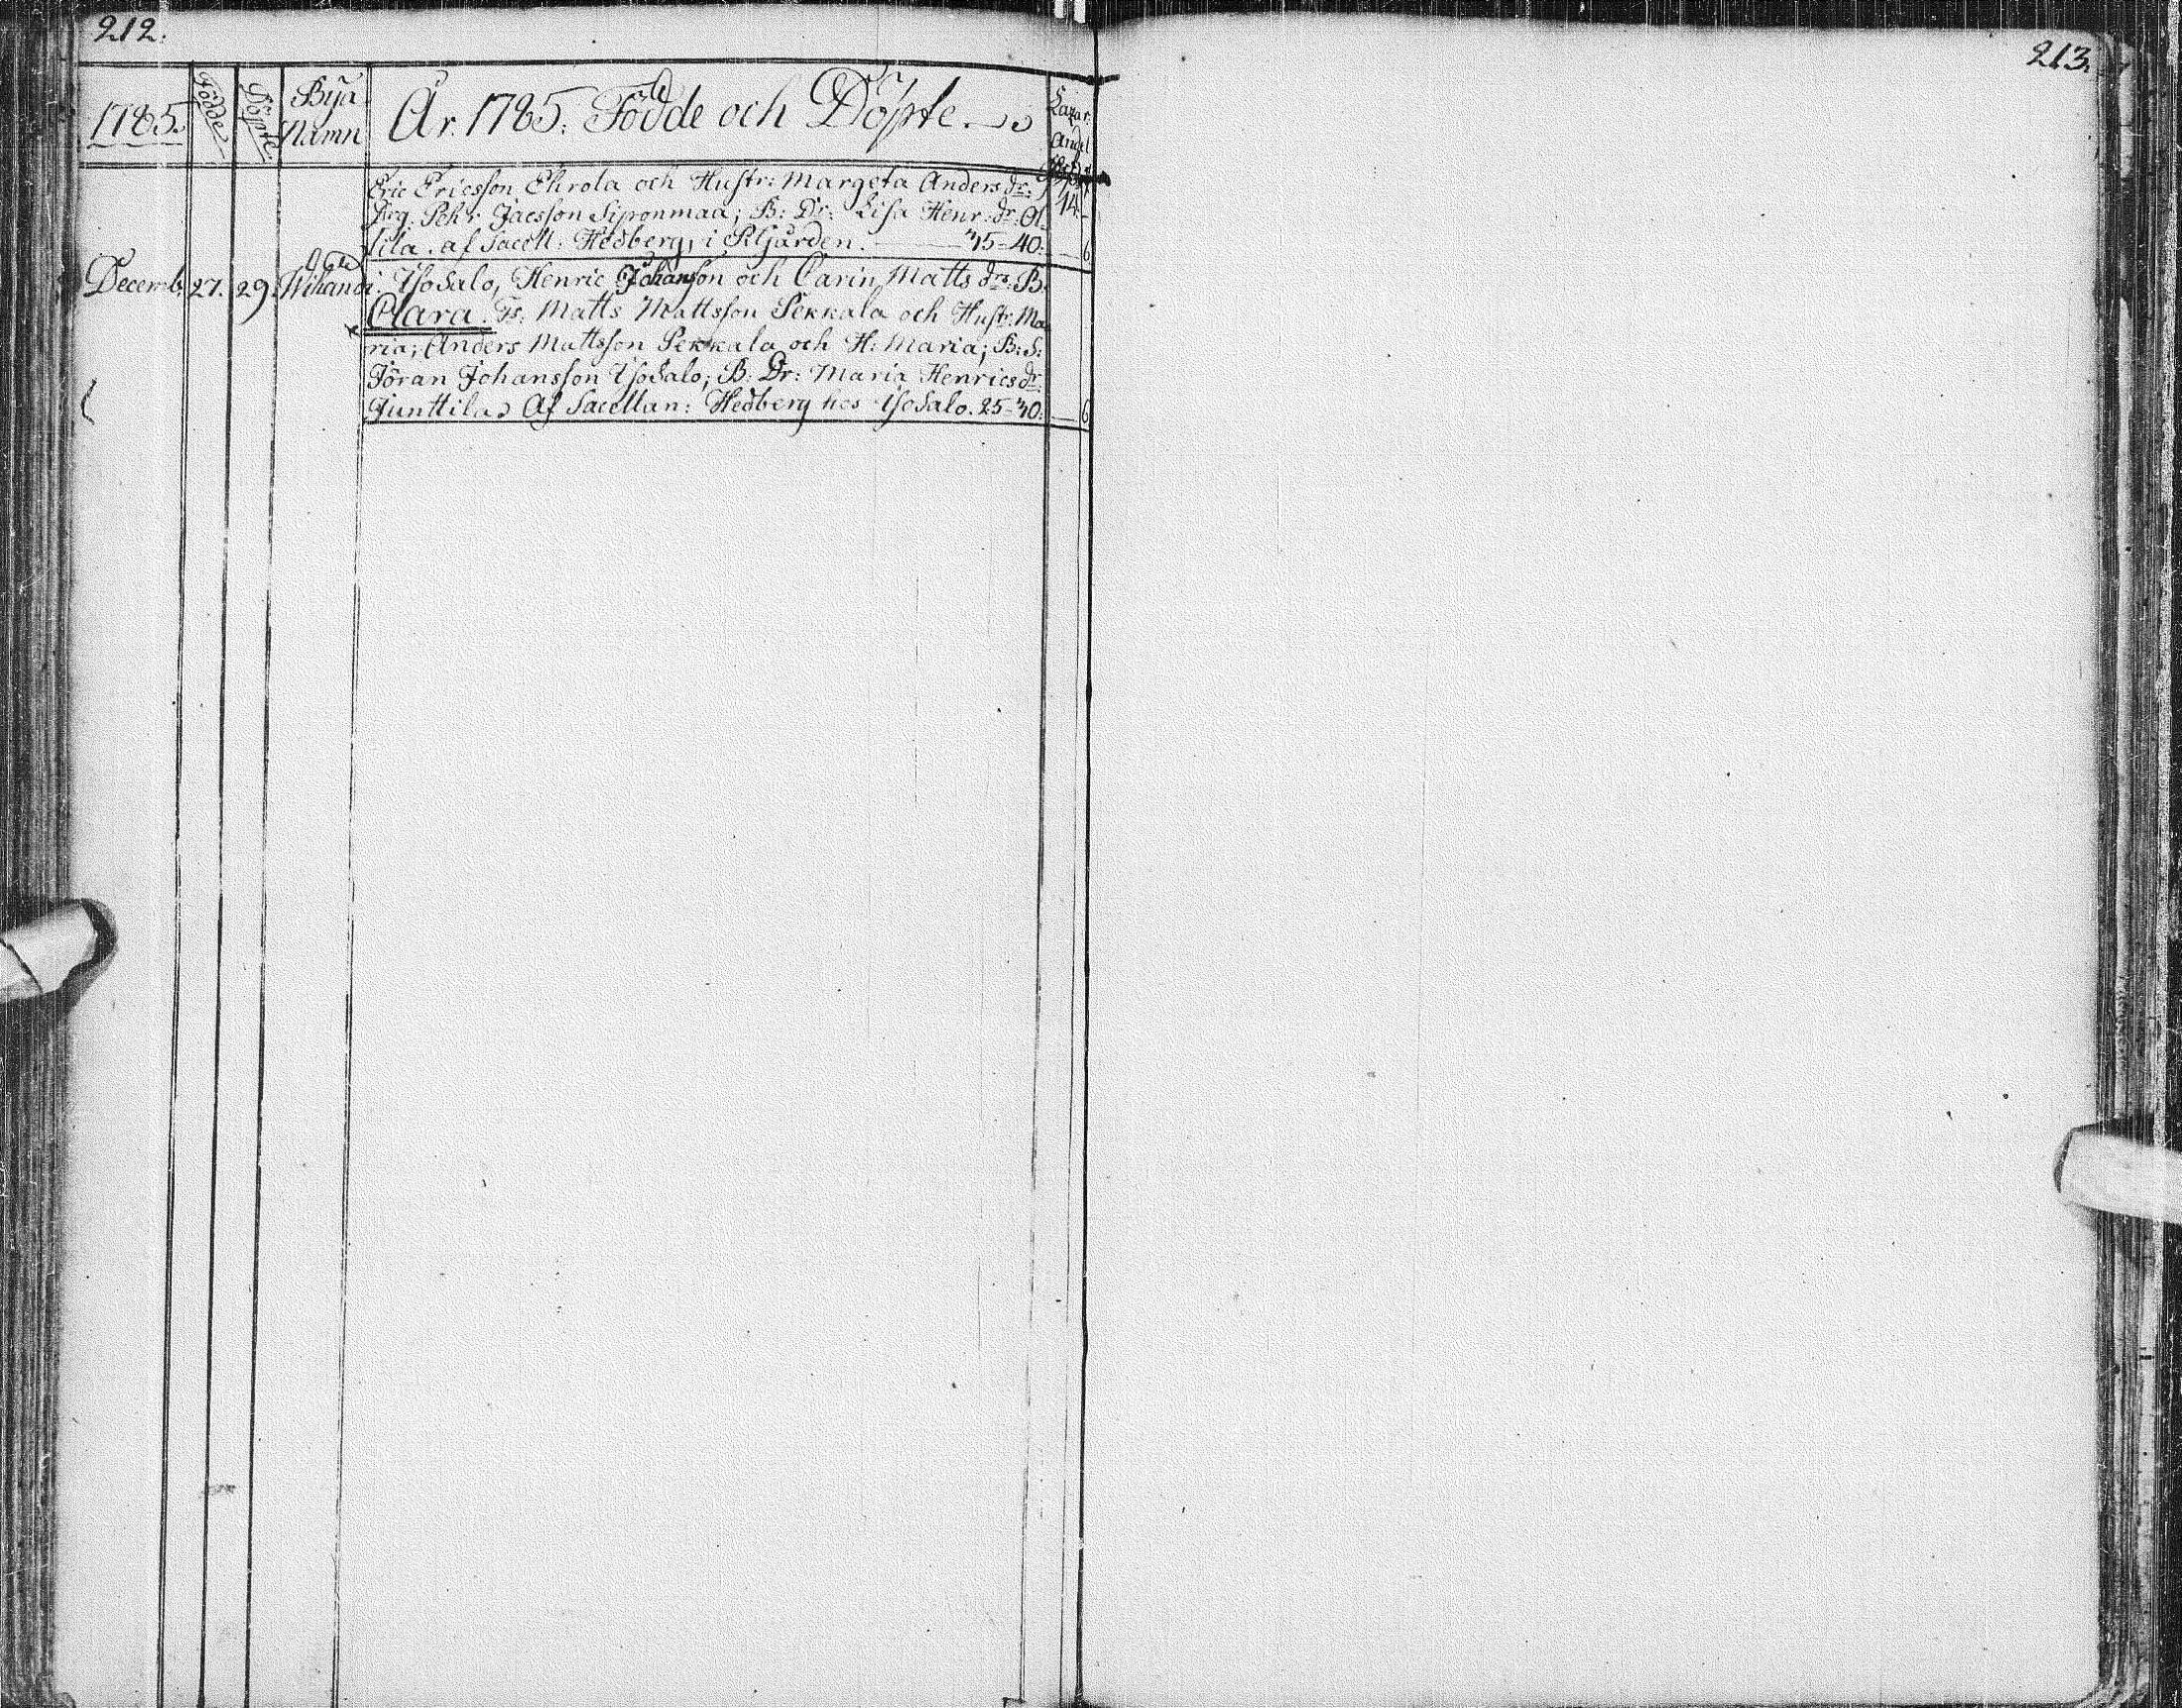 212.
213.
1785. Födde Döpte Byä Namn År. 1785. Födde och Döpte. Lazar: Andel
Eric Ericsson Ehrola och Hustr: Margeta Anders dr: 14.
Drg. Pehr Jacsson Sipronmaa; B: Dr: Lisa Henr: dr: Ol
lila. af Sacell: Hedberg, i Pr.gården. 45-40. 6
Decemb. 27. 29. Wihandi. YsoSalo, Henric Johansson och Carin Matts dr: B.
Clara. Ts: Matts Mattsson Pekkala och Hustr: Ma
ria; Anders Mattsson Pekkala och H: Maria; B: S:
Jöran Johansson YsoSalo; B: Dr: Maria Henrics dr:
Junttila. Af Sacellan: Hedberg hos YsoSalo. 25-40. 6